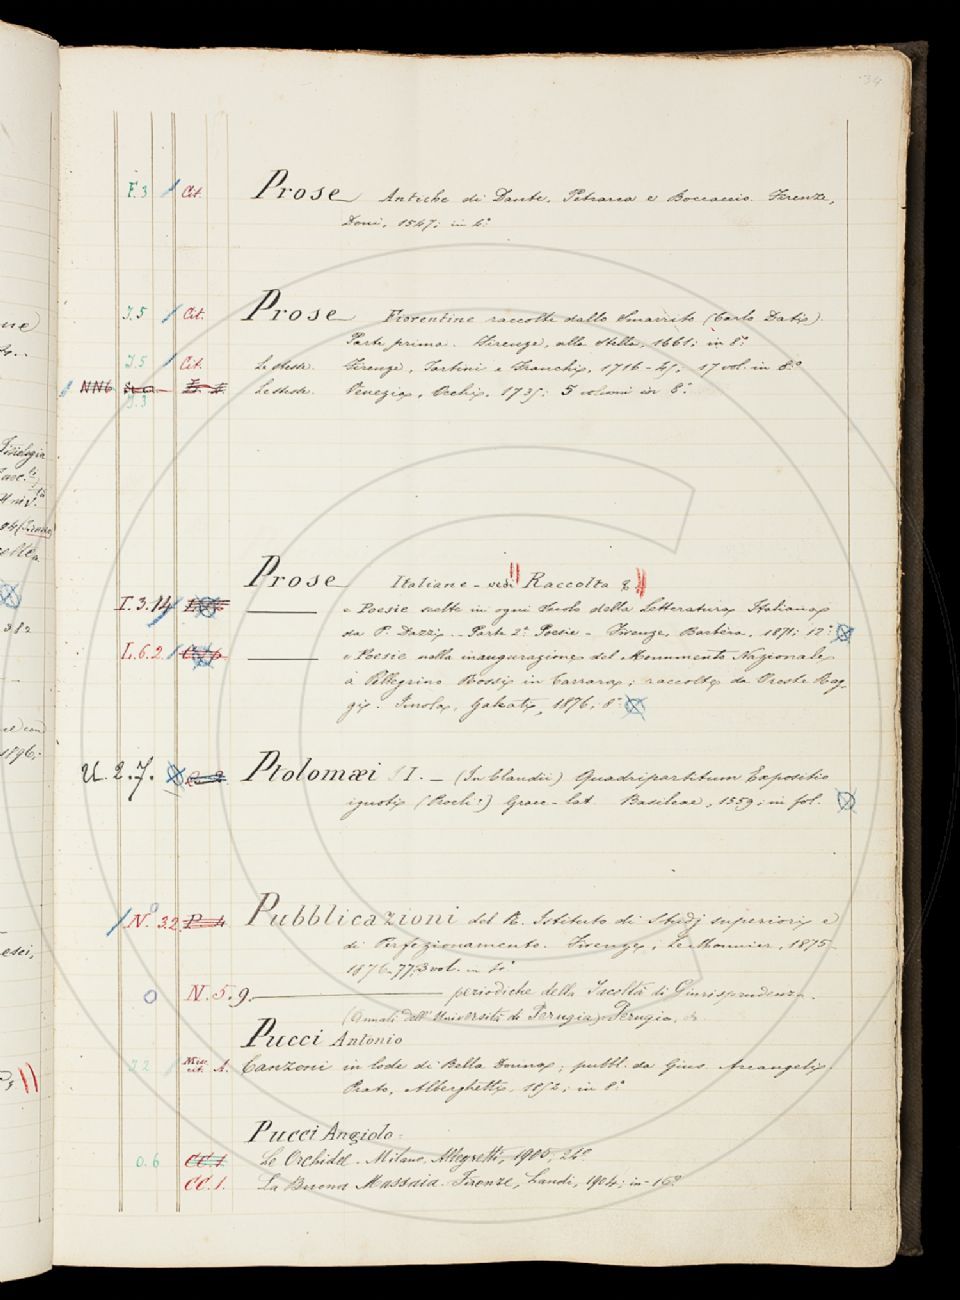 34
F.3 / Cit. Prose Antiche di Dante, Petrarca e Boccaccio. Firenze,
Doni, 1547; in 4.°
I.5 / Cit. Prose Fiorentine raccolte dallo Smarrito (Carlo Dati).
Parte prima. Firenze, alla Stella, 1661; in 8.°
I.5 / Cit. Le stesse. Firenze, Tartini e Franchi, 1716-45, 17 vol. in 8.°
NN6 Le stesse. Venezia, Occhi, 1735; 5 volumi in 8.°
I.3
Prose Italiane - vedi Raccolta &
I.3.14 e Poesie scelte in ogni Secolo della Letteratura Italiana
da P. Dazzi - Parte 2.ª Poesie - Firenze, Barbèra, 1871; 12.°
I.6.2 e Poesie nella inaugurazione del Monumento Nazionale
a Pellegrino Rossi in Carrara; raccolte da Oreste Rag-
gi. Imola, Galeati, 1876, 8.°
U.2.7. Ptolomæi I. - (In Claudii) Quadripartitum Expositio
ignoti (Procli?) Graec-lat. Basileae, 1559; in fol.
N. 3.2 P.4 Pubblicazioni del R. Istituto di Studj superiori e
di Perfezionamento. Firenze, Le Monnier, 1875-
1876-77, 3 vol. in 4.°
N.5.9. periodiche della Facoltà di Giurisprudenza.
(Annali dell'Università di Perugia) Perugia,
Pucci Antonio
I.2 Misc. cit. A. Canzoni in lode di Bella Donna; pubbl. da Gius. Arcangeli.
Prato, Alberghetti, 1852; in 8.°
Pucci Angiolo
O.6 CC.1. Le Orchidee. Milano, Allegretti, 1905, 24.°
CC.1. La Buona Massaia. Firenze, Landi, 1904; in-16.°